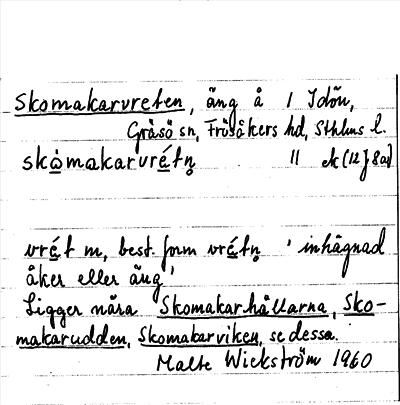 Skomakarvreten, äng å / Idön,
Gräsö sn, Frösåkers hd, Sthlms l.
skòmakarvrétn̥ "
vrét m, best. form vrétn̥ 'inhägnad
åker eller äng'
Ligger nära Skomakarhällarna, Sko-
makarudden, Skomakarviken, se dessa.
Malte Wickström 1960